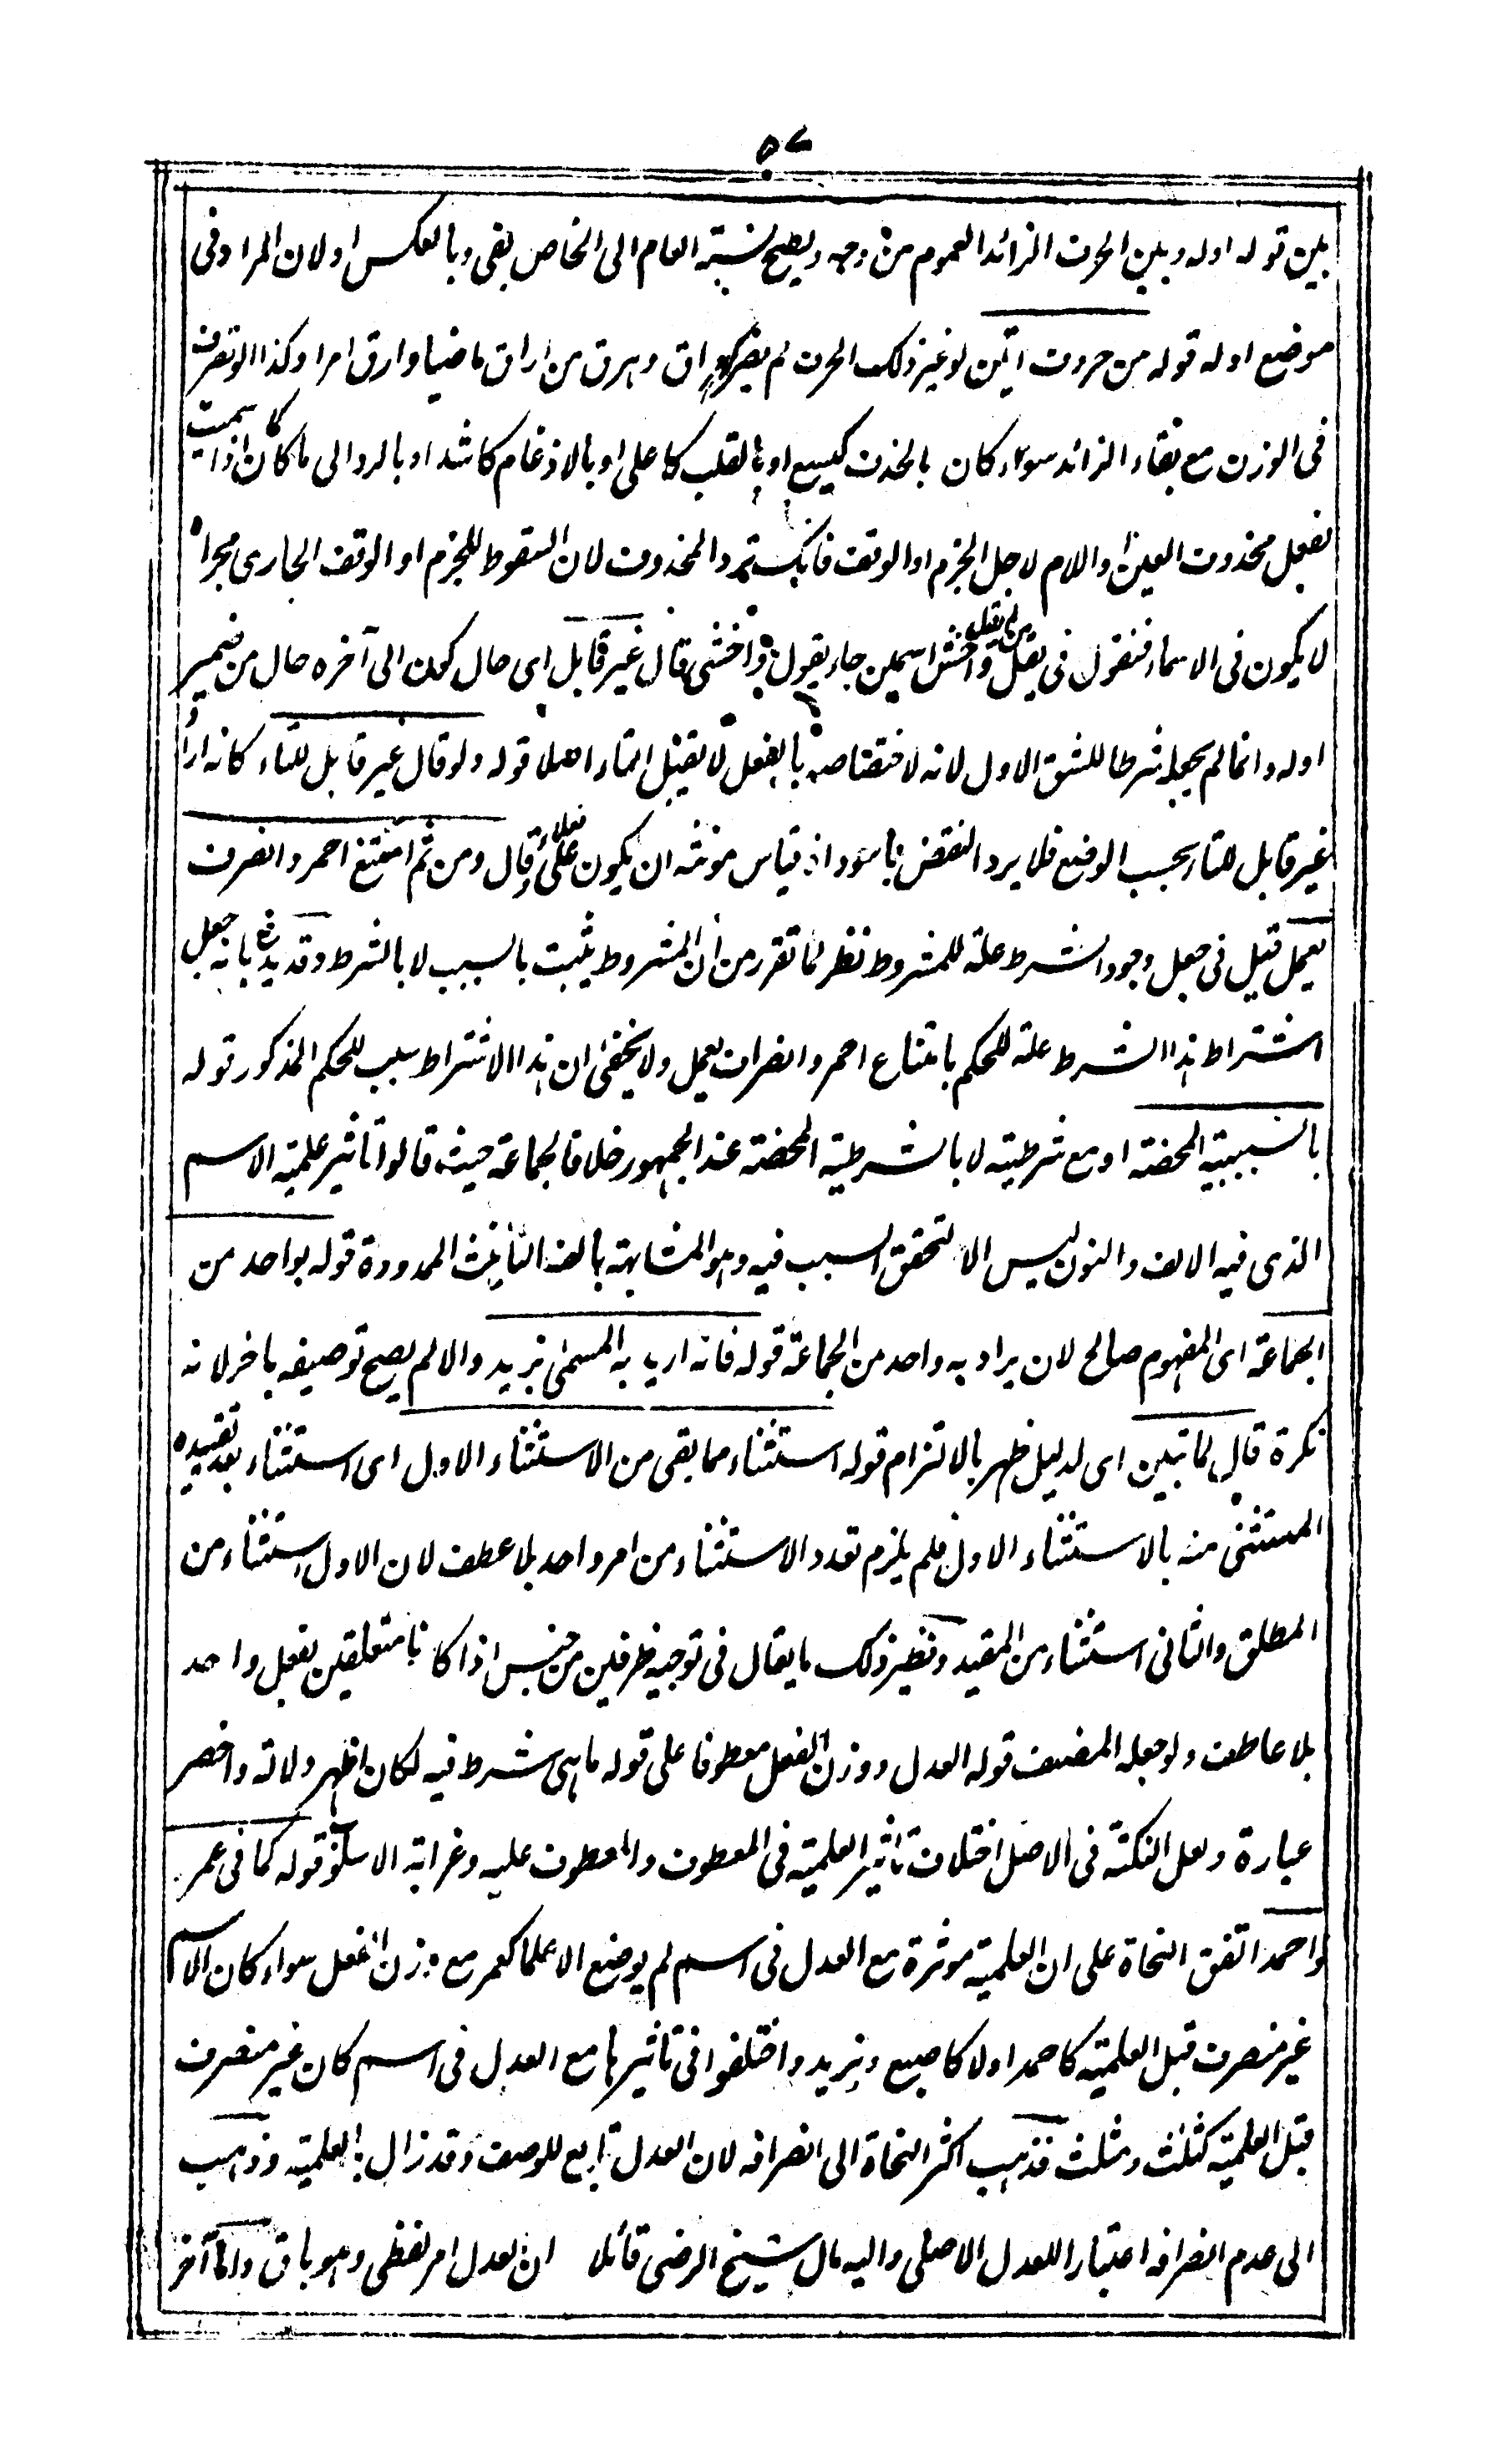 ٥٧
بين قوله اوله وبين الحرف الزائد العموم من وجه ويصح نسبة العام الى الخاص بفى وبالعكس او لان المراد فى
موضع اوله قوله من حروف اتين لو غير ذلك الحرف لم يضر كهراق وهرق من اراق ماضيا وارق امرا وكذا لو تصرف
فى الوزن مع بقاء الزائد سواء كان بالحذف كيسع او بالقلب كاعلى او بالادغام كاشد او بالرد الى ما كان اذا سميت
بفعل محذوف العين او اللام لاجل الجزم او الوقف فانك ترد المحذوف لان السقوط للجزم او الوقف الجارى مجراه
لا يكون فى الاسماء فنقول فى يقل من لم يقل واخش اسمين جاء يقول واخشى قال غير قابل اى حال كون الى آخره حال من ضمير
اوله وانما لم يجعله شرطا للشق الاول لانه لاختصاصه بالفعل لا يقبل التاء اصلا قوله ولو قال غير قابل للتاء كانه اراد
غير قابل للتاء بحسب الوضع فلا يرد النقض باسود اذ قياس مونثه ان يكون على فعلاء قال ومن ثم امتنع احمر وانصرف
يعمل قيل فى جعل وجود الشرط علة للمشروط نظر لما تقرر من ان المشروط يثبت بالسبب لا بالشرط وقد يدفع بانه جعل
اشتراط هذا الشرط علة للحكم بامتناع احمر وانصراف يعمل ولا يخفى ان هذا الاشتراط سبب للحكم المذكور قوله
بالسببية المحضة او مع شرطية لا بالشرطية المحضة عند الجمهور خلافا لجماعة حيث قالوا تاثير علمية الاسم
الذى فيه الالف والنون ليس الا لتحقق السبب فيه وهو المشابهة بالف التانيث الممدودة قوله بواحد من
الجماعة اى المفهوم صالح لان يراد به واحد من الجماعة قوله فانه اريد به المسمى بزيد والا لم يصح توصيفه باخر لانه
نكرة قال لما تبين اى لدليل ظهر بالالتزام قوله استثناء مما بقى من الاستثناء الاول اى استثناء بعد تقييده
المستثنى منه بالاستثناء الاول فلم يلزم تعدد الاستثناء من امر واحد بلا عطف لان الاول استثناء من
المطلق والثانى استثناء من المقيد ونظير ذلك ما يقال فى توجيه ظرفين من جنس اذا كانا متعلقين بفعل واحد
بلا عاطف ولو جعله المصنف قوله العدل ووزن الفعل معطوفا على قوله ما هى شرط فيه لكان اظهر دلالة واخصر
عبارة ولعل النكتة فى الاصل اختلاف تاثير العلمية فى المعطوف والمعطوف عليه وغرابة الاسلوب قوله كما فى عمر
واحمد اتفق النحاة على ان العلمية موثرة مع العدل فى اسم لم يوضع الا علما كعمر مع وزن الفعل سواء كان الاسم
غير منصرف قبل العلمية كاحمد اولا كاصبع ويزيد واختلفوا فى تاثيرها مع العدل فى اسم كان غير منصرف
قبل العلمية كثلث ومثلث فذهب اكثر النحاة الى انصرافه لان العدل تابع للوصف وقد زال بالعلمية وذهب
الى عدم انصرافه اعتبارا للعدل الاصلى واليه مال شيخ الرضى قائلا ان العدل امر لفظى وهو باق وانما آخر